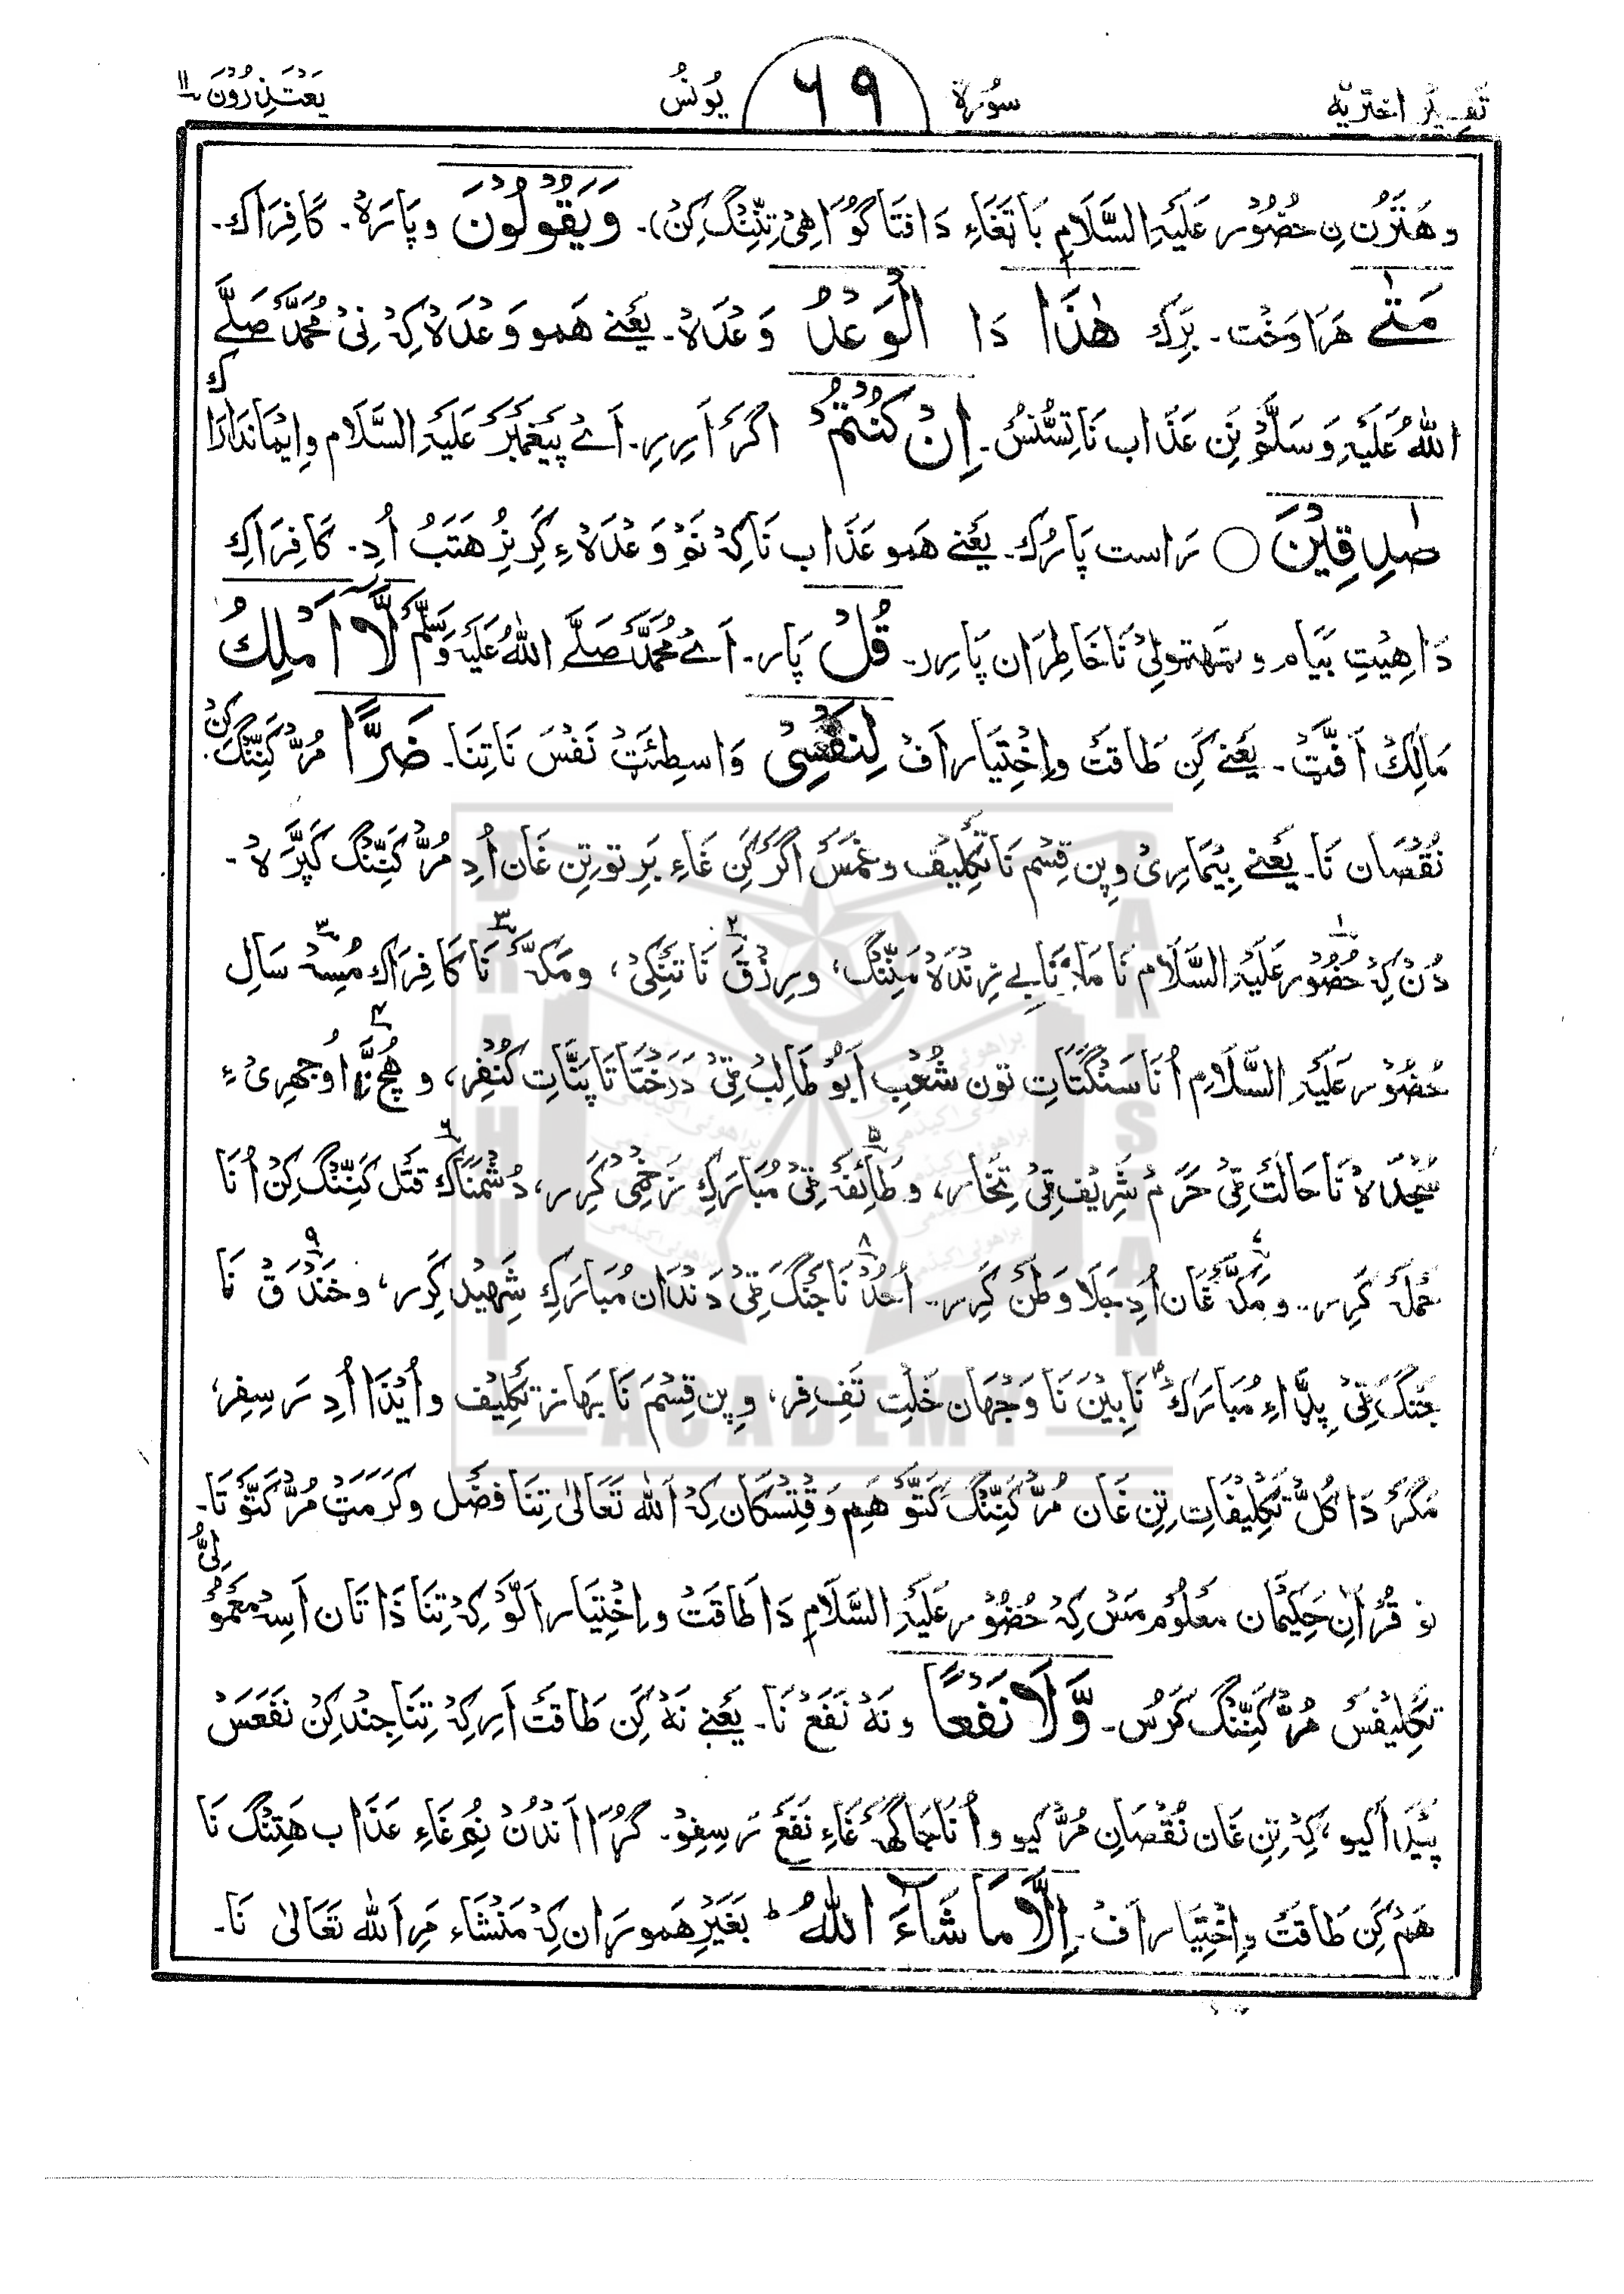 تَفسِیْرِ اَختَرِیَّہ سُوْرَۃ ۶۹ یُوْنُسْ یَعْتَذِرُوْنَ ۱۱
و ھَنَرُن نِ حُضُوْر عَلَیْہِ السَّلَامِ بَاتَغَاءِ دَافتَا گُوَاھِیْ تِنِّنِگ کِنْ)۔ وَیَقُوْلُوْنَ و پَارَہْ۔ کَافِرَاک۔
مَتٰے ھَرَا وَخْت۔ بَرِک ھٰذَا دَا الْوَعْدُ وَعْدَہْ۔ یَعْنے ھَمو وَعْدَہْ کِہْ نِیْ مُحَمَّدْ صَلَّے
اللّٰہُ عَلَیْہِ وَسَلَّمْ نَنِ عَذَاب نَا تِسُّنُسْ۔ اِنْ کُنْتُمْ اگَرْ اَرِیرِ۔ اَےْ پَیْغَمْبَرْ عَلَیْہِ السَّلَام و اِیْمَانْدَارَاک
صٰدِقِیْنَ ○ رَاست پَارُک۔ یَعْنے ھَمو عَذَاب نَا کِہْ نُمْ وَعْدَہْ ءِ کَرِیرْ ھَتَبُ اُدِ۔ کَافِرَاک
دَا ھِیْتِ بَیَام و تَمِھْمُولِیْ نَا خَاطِرَان پَارِرہ۔ قُلْ پَار۔ اَےْ مُحَمَّدْ صَلَّے اللّٰہُ عَلَیْہِ وَسَلَّمْ لَّآ اَمْلِکُ
مَالِکْ اَفَّٹْ۔ یَعْنے کَنِ طَاقَتْ و اِخْتِیَار اَفْ لِنَفْسِیْ وَاسِطَئَٹْ نَفْسْ نَا تِنَا۔ ضَرًّا مُرْ کَنِّنْگ کِنْ
نُقْصَان نَا۔ یَعْنے بِیْمَارِیْ و پِن قِسْم نَا تَکْلِیْف و غَمَسْ اگَرْ کَنِ غَاءِ بَرِ تو تِن غَان اُدِ مُرْ کَنِّنْگ کَپَّرَہْ۔
دُنْ کِہْ حُضُوْر عَلَیْہِ السَّلَام نَا مَارْ نَابے زِنْدَہْ مَنِّنْگ، و رِزْقْ نَا تَنْکِیْ، و مَکَّہْ نَا کَافِرَاک مُسِہْ سَال
حُضُوْر عَلَیْہِ السَّلَامِ اُنَا سَنْگَتَاتِ تون شُعْبِ اَبُوْ طَالِبْ ٹِیْ دَرَخْتَاتَا پَنَّاتِ کُنْفِر، و ھُچْ نَا اُوجَھرِیْ ءِ
سَجْدَہْ نَا حَالَتْ ٹِیْ حَرَمِ شَرِیْف ٹِیْ تِخَار، و طَائِفْ ٹِیْ مُبَارَکِ زَخْمِیْ کَرِیر، دُشْمَنَاک قَتْل کَنِّنْگ کِنْ اُنَا
حَمْلَہْ کَرِیر۔ و مَکَّہْ غَان اُدِ جَلَا وَطَنْ کَرِیر۔ اُحُدْ نَا جَنْگ ٹِیْ دَنْدَان مُبَارَکِ شَھِیْد کَرِیر، و خَنْدَق نَا
جَنْگ ٹِیْ پِڈَّاءِ مُبَارَکْ نَا بِیْن نَا وَجْھَان خَلْتِ تَفِفِر، و پِن قِسْمْ نَا بَھَاز تَکْلِیْف و اُیْذَا اُدِ رَسِفِر،
مَگَرْ دَا کُلّ تَکْلِیْفَاتِ تِنِ غَان مُرْ کَنِّنْگ کَتَّوْ ھَمِ وَقْتِسْکَان کِہْ اَللّٰہ تَعَالٰی تِنَا فَضْل و کَرَمَٹْ مُرْ کَتَّوْ تَا۔
تو قُرْآنِ حَکِیْمَان مَعْلُوْم مَسْ کِہْ حُضُوْر عَلَیْہِ السَّلَامِ دَا طَاقَتْ و اِخْتِیَار اَلَّوْ کِہْ تِنَا ذَاتَان اَسِہْ مَعْمُوْلِیْ
تَکْلِیْفَسْ مُرْ کَنِّنْگ کَرُسْ۔ وَّلَا نَفْعًا و نَہْ نَفَعْ نَا۔ یَعْنے نَہْ کَنِ طَاقَتْ اَرِ کِہْ تِنَا جِنْد کِنْ نَفَعَسْ
پَیْدَا کیو، کِہْ تِنِ غَان نُقْصَانِ مُرْ کیو و اُنَا جَاگَہْ غَاءِ نَفَعْ رَسِفِوْ۔ گُرَا اَنْدُنْ نُمْ غَاءِ عَذَاب ھَتِنْگ نَا
ھَمْ کَنِ طَاقَتْ و اِخْتِیَار اَفْ۔ اِلَّا مَا شَآءَ اللّٰہُ ط بَغَیْرِ ھَمورَان کِہْ مَنْشَاء مَرِ اَللّٰہ تَعَالٰی نَا۔
BRAHUI
ACADEMY
PAKISTAN